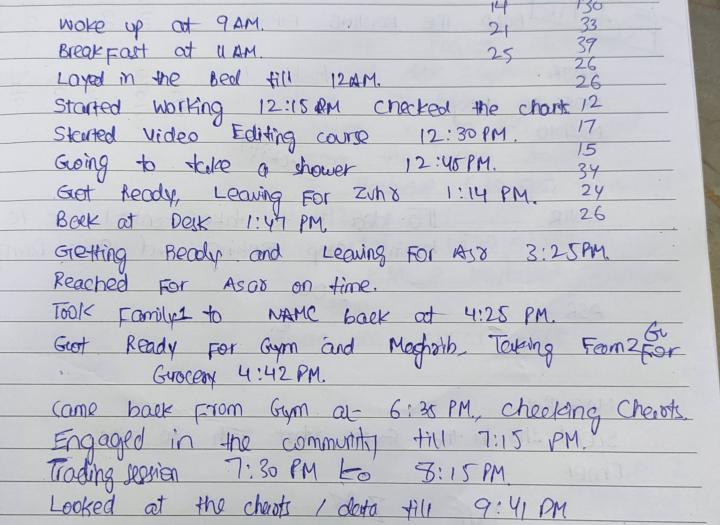 14 130
Woke up at 9 AM. 21 33
Breakfast at 11 AM. 25 39
26
Layed in the Bed till 12AM. 26
Started Working 12:15 PM checked the charts 12
Started Video Editing course 12:30 PM. 17
15
Going to take a shower 12:45 PM. 34
Got Ready, Leaving For Zuhr 1:14 PM. 24
Back at Desk 1:47 PM 26
Getting Ready and Leaving For Asr 3:25 PM.
Reached For Asar on time.
Took Family1 to NAMC back at 4:25 PM.
Got Ready For Gym and Maghrib, Taking Fam2 For
Grocery 4:42 PM.
Came back From Gym at 6:35 PM., checking Charts.
Engaged in the community till 7:15 PM.
Trading session 7:30 PM to 8:15 PM
Looked at the charts / data till 9:41 PM